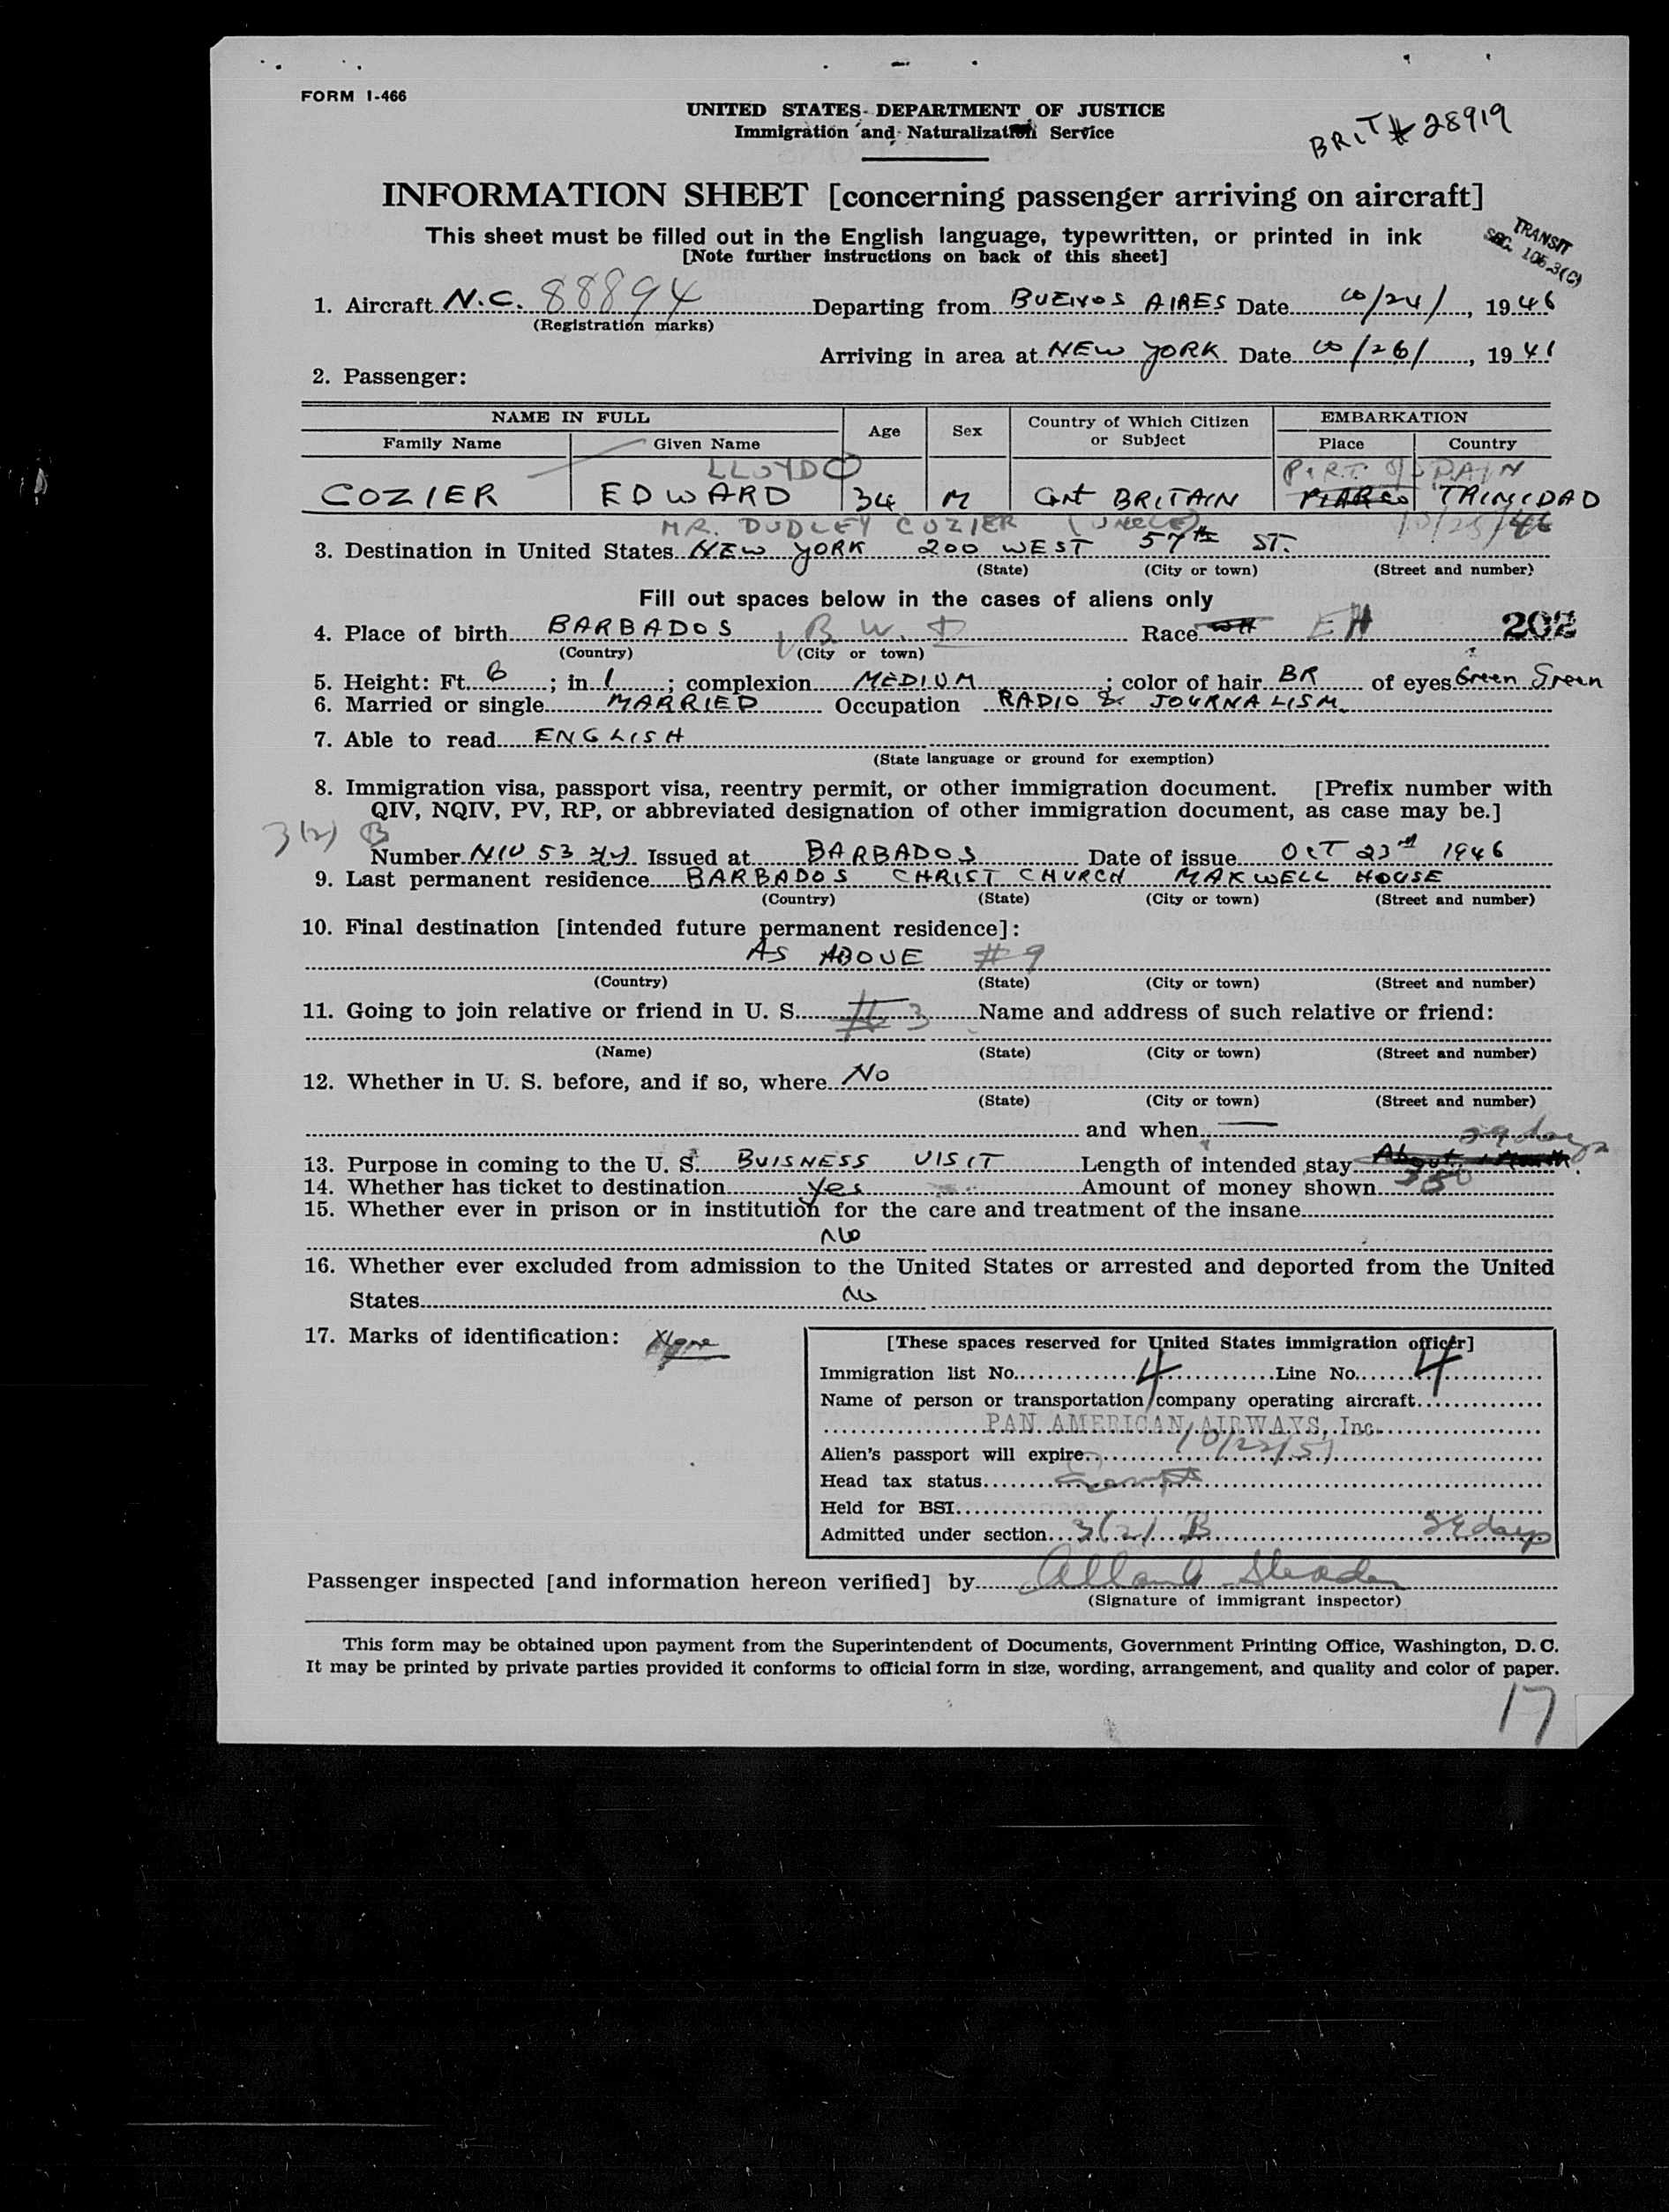 FORM I-466
UNITED STATES DEPARTMENT OF JUSTICE
Immigration and Naturalization Service
BRIT # 28919
INFORMATION SHEET [concerning passenger arriving on aircraft]
This sheet must be filled out in the English language, typewritten, or printed in ink
[Note further instructions on back of this sheet]
TRANSIT
SEC. 105.3(C)
1. Aircraft N.C. 88894 Departing from BUENOS AIRES Date 10/24/, 1946
(Registration marks)
Arriving in area at NEW YORK Date 10/26/, 19
2. Passenger:
NAME IN FULL Age Sex Country of Which Citizen or Subject EMBARKATION
Family Name Given Name Place Country
LLOYD PORT OF SPAIN
COZIER EDWARD 34 M Gnt BRITAIN PIARCO TRINIDAD
MR. DUDLEY COZIER (UNCLE) 10/25/46
3. Destination in United States NEW YORK 200 WEST 57th ST.
(State) (City or town) (Street and number)
Fill out spaces below in the cases of aliens only
4. Place of birth BARBADOS, B.W.I Race WH EH 202
(Country) (City or town)
5. Height: Ft. 6; in 1; complexion MEDIUM; color of hair BR of eyes Green Green
6. Married or single MARRIED Occupation RADIO & JOURNALISM.
7. Able to read ENGLISH
(State language or ground for exemption)
8. Immigration visa, passport visa, reentry permit, or other immigration document. [Prefix number with
QIV, NQIV, PV, RP, or abbreviated designation of other immigration document, as case may be.]
3(2) B
Number NIV 53 Issued at BARBADOS Date of issue OCT 23rd 1946
9. Last permanent residence BARBADOS CHRIST CHURCH MAXWELL HOUSE
(Country) (State) (City or town) (Street and number)
10. Final destination [intended future permanent residence]:
AS ABOVE #9
(Country) (State) (City or town) (Street and number)
11. Going to join relative or friend in U. S. #3 Name and address of such relative or friend:
(Name) (State) (City or town) (Street and number)
12. Whether in U. S. before, and if so, where No
(State) (City or town) (Street and number)
and when —
29 days
13. Purpose in coming to the U. S. BUISNESS VISIT Length of intended stay About 1 Month.
14. Whether has ticket to destination Yes Amount of money shown
15. Whether ever in prison or in institution for the care and treatment of the insane
No
16. Whether ever excluded from admission to the United States or arrested and deported from the United
States No
17. Marks of identification: None
[These spaces reserved for United States immigration officer]
Immigration list No. 4 Line No. 4
Name of person or transportation company operating aircraft
PAN AMERICAN AIRWAYS, Inc.
Alien's passport will expire 10/22/51
Head tax status Exempt
Held for BSI
Admitted under section 3(2) B 29 days
Passenger inspected [and information hereon verified] by
(Signature of immigrant inspector)
This form may be obtained upon payment from the Superintendent of Documents, Government Printing Office, Washington, D. C.
It may be printed by private parties provided it conforms to official form in size, wording, arrangement, and quality and color of paper.
17